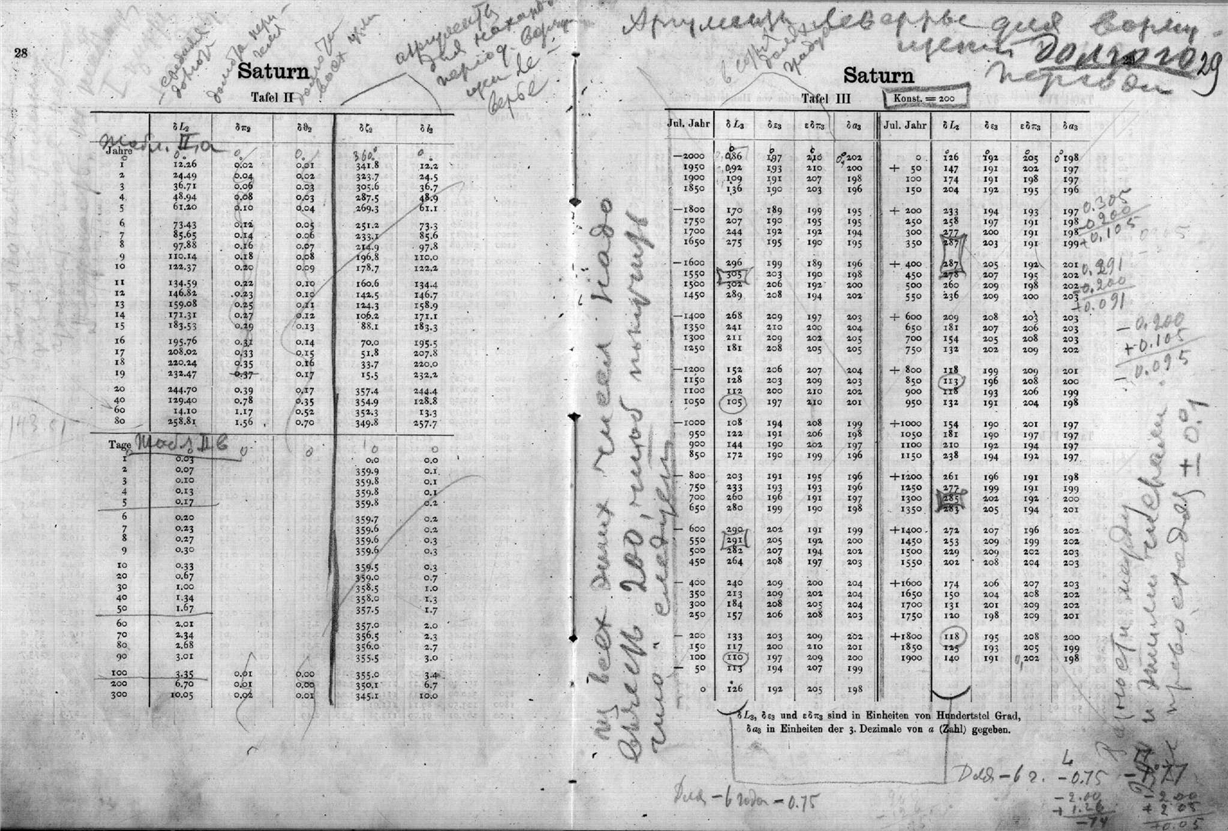 28
Saturn
Tafel II
δL₂ δπ₂ δθ₂ δζ₂ δl₂
Табл. II,а
Jahre
0 0. 0. 0. 360. 0.
1 12.26 0.02 0.01 341.8 12.2
2 24.49 0.04 0.02 323.7 24.5
3 36.71 0.06 0.03 305.6 36.7
4 48.94 0.08 0.03 287.5 48.9
5 61.20 0.10 0.04 269.3 61.1
6 73.43 0.12 0.05 251.2 73.3
7 85.65 0.14 0.06 233.1 85.6
8 97.88 0.16 0.07 214.9 97.8
9 110.14 0.18 0.08 196.8 110.0
10 122.37 0.20 0.09 178.7 122.2
11 134.59 0.22 0.10 160.6 134.4
12 146.82 0.23 0.10 142.5 146.7
13 159.08 0.25 0.11 124.3 158.9
14 171.31 0.27 0.12 106.2 171.1
15 183.53 0.29 0.13 88.1 183.3
16 195.76 0.31 0.14 70.0 195.5
17 208.02 0.33 0.15 51.8 207.8
18 220.24 0.35 0.16 33.7 220.0
19 232.47 0.37 0.17 15.5 232.2
20 244.70 0.39 0.17 357.4 244.4
40 129.40 0.78 0.35 354.9 128.8
60 14.10 1.17 0.52 352.3 13.3
80 258.81 1.56 0.70 349.8 257.7
Tage Табл II в
1 0.03 0.0 0.0
2 0.07 359.9 0.1
3 0.10 359.8 0.1
4 0.13 359.8 0.1
5 0.17 359.8 0.2
6 0.20 359.7 0.2
7 0.23 359.6 0.2
8 0.27 359.6 0.3
9 0.30 359.6 0.3
10 0.33 359.5 0.3
20 0.67 359.0 0.7
30 1.00 358.5 1.0
40 1.34 358.0 1.3
50 1.67 357.5 1.7
60 2.01 357.0 2.0
70 2.34 356.5 2.3
80 2.68 356.0 2.7
90 3.01 355.5 3.0
100 3.35 0.01 0.00 355.0 3.4
200 6.70 0.01 0.00 350.1 6.7
300 10.05 0.02 0.01 345.1 10.0
из всех этих чисел надо
вычесть 200 чтоб получить
число
Аргументы Леверрье для
долгого
периода
29
Saturn
Tafel III Konst. = 200
Jul. Jahr δL₃ δε₃ εδπ₃ δa₃ Jul. Jahr δL₃ δε₃ εδπ₃ δa₃
—2000 086 197 210 202 0 126 192 205 198
1950 092 193 210 200 + 50 147 191 202 197
1900 109 191 207 198 100 174 191 198 197
1850 136 190 203 196 150 204 192 195 196
—1800 170 189 199 195 + 200 233 194 193 197
1750 207 190 195 195 250 258 197 191 198
1700 244 192 192 194 300 277 200 191 198
1650 275 195 190 195 350 287 203 191 199
—1600 296 199 189 196 + 400 287 205 192 201
1550 305 203 190 198 450 278 207 195 202
1500 302 206 192 200 500 260 209 198 202
1450 289 208 194 202 550 236 209 200 203
—1400 268 209 197 203 + 600 209 208 203 203
1350 241 210 200 204 650 181 207 206 203
1300 211 209 202 205 700 154 205 208 203
1250 181 208 205 205 750 132 202 209 202
—1200 152 206 207 204 + 800 118 199 209 201
1150 128 203 209 203 850 113 196 208 200
1100 112 200 210 202 900 118 193 206 199
1050 105 197 210 201 950 132 191 204 198
—1000 108 194 208 199 +1000 154 190 201 197
950 122 191 206 198 1050 181 190 197 197
900 144 190 202 197 1100 210 192 194 197
850 172 190 199 196 1150 238 194 192 197
— 800 203 191 195 196 +1200 261 196 191 198
750 233 193 193 196 1250 277 199 191 199
700 260 196 191 197 1300 285 202 192 200
650 280 199 190 198 1350 283 205 194 201
— 600 290 202 191 199 +1400 272 207 196 202
550 291 205 192 200 1450 253 209 199 202
500 282 207 194 202 1500 229 209 202 203
450 264 208 197 203 1550 202 208 204 203
— 400 240 209 200 204 +1600 174 206 207 203
350 213 209 202 204 1650 150 204 208 202
300 184 208 205 204 1700 131 201 209 202
250 157 206 208 203 1750 120 198 209 201
— 200 133 203 209 202 +1800 118 195 208 200
150 117 200 210 201 1850 125 193 205 199
100 110 197 209 200 1900 140 191 202 198
— 50 113 194 207 199
0 126 192 205 198
δL₃, δε₃ und εδπ₃ sind in Einheiten von Hundertstel Grad,
δa₃ in Einheiten der 3. Dezimale von a (Zahl) gegeben.
0.305
-0.200
+0.105
0.291
-0.200
+0.091
-0.200
+0.105
0.095
Разность между
± 0.°1
Для -6 года -0.75
Для -6 г. -0.75
-2.00